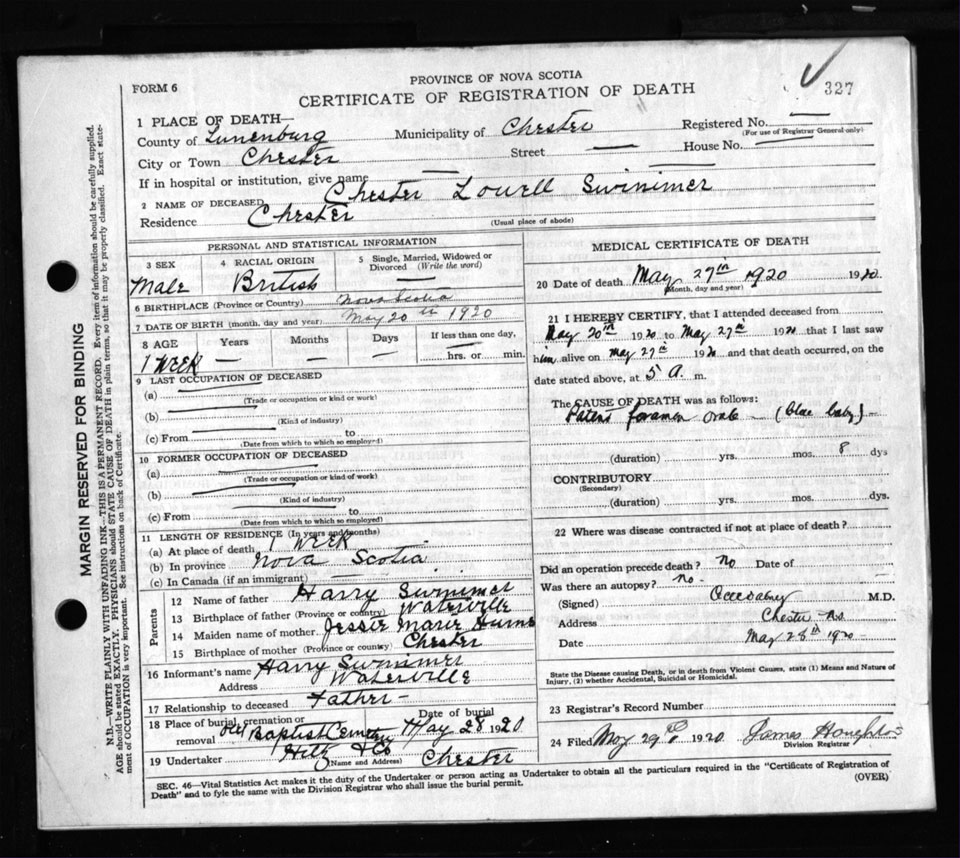 PROVINCE OF NOVA SCOTIA
FORM 6
CERTIFICATE OF REGISTRATION OF DEATH
327
1 PLACE OF DEATH—
County of Lunenburg Municipality of Chester Registered No. —
(For use of Registrar General only)
City or Town Chester Street — House No. —
If in hospital or institution, give name —
2 NAME OF DECEASED Chester Lowell Swinimer
Residence Chester
(Usual place of abode)
PERSONAL AND STATISTICAL INFORMATION
3 SEX 4 RACIAL ORIGIN 5 Single, Married, Widowed or Divorced (Write the word)
Male British —
6 BIRTHPLACE (Province or Country) Nova Scotia
7 DATE OF BIRTH (month, day and year) May 20th 1920
8 AGE Years Months Days If less than one day,
1 WEEK — — — hrs. or min.
9 LAST OCCUPATION OF DECEASED
(a)
(Trade or occupation or kind or work)
(b)
(Kind of industry)
(c) From to
(Date from which to which so employed)
10 FORMER OCCUPATION OF DECEASED
(a)
(Trade or occupation or kind of work)
(b)
(Kind of industry)
(c) From to
(Date from which to which so employed)
11 LENGTH OF RESIDENCE (In years and months)
(a) At place of death 1 WEEK
(b) In province Nova Scotia
(c) In Canada (if an immigrant)
Parents
12 Name of father Harry Swinimer
13 Birthplace of father (Province or country) Waterville
14 Maiden name of mother Jessie Marie
15 Birthplace of mother (Province or country) Chester
16 Informant's name Harry Swinimer
Address Waterville
17 Relationship to deceased Father —
18 Place of burial, cremation or removal Old Baptist Cemetery Date of burial May 28 1920
19 Undertaker Hiltz & Co Chester
(Name and Address)
MEDICAL CERTIFICATE OF DEATH
20 Date of death May 27th 1920 1920.
(Month, day and year)
21 I HEREBY CERTIFY, that I attended deceased from
May 20th 1920 to May 27th 1920 that I last saw
him alive on May 27th 1920 and that death occurred, on the
date stated above, at 5 A. m.
The CAUSE OF DEATH was as follows:
Patent foramen ovale — (blue baby) —
(duration) yrs. mos. 8 dys
CONTRIBUTORY
(Secondary)
(duration) yrs. mos. dys.
22 Where was disease contracted if not at place of death?
Did an operation precede death? No Date of
Was there an autopsy? No -
(Signed) M.D.
Address Chester N.S.
Date May 28th 1920
State the Disease causing Death, or in death from Violent Causes, state (1) Means and Nature of
Injury, (2) whether Accidental, Suicidal or Homicidal.
23 Registrar's Record Number
24 Filed May 29th 1920 James Houghton
Division Registrar
SEC. 46—Vital Statistics Act makes it the duty of the Undertaker or person acting as Undertaker to obtain all the particulars required in the "Certificate of Registration of
Death" and to fyle the same with the Division Registrar who shall issue the burial permit.
(OVER)
MARGIN RESERVED FOR BINDING
N.B.—WRITE PLAINLY WITH UNFADING INK—THIS IS A PERMANENT RECORD. Every item of information should be carefully supplied.
AGE should be stated EXACTLY. PHYSICIANS should STATE CAUSE OF DEATH in plain terms, so that it may be properly classified. Exact state-
ment of OCCUPATION is very important. See instructions on back of Certificate.